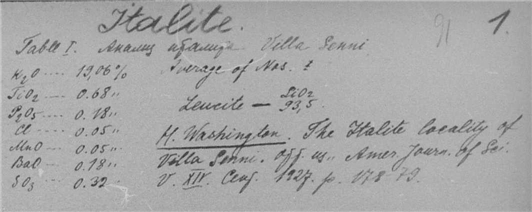 Italite. 91 1.
Table I. Анализ италита Villa Senni
K₂O --- 19,06%
Average of Nos. 2
TiO₂ --- 0.68 "
P₂O₅ --- 0.18 "
Leucite — 93,5.
Cl --- 0.05 "
MnO --- 0.05 "
BaO --- 0.18 "
SO₃ --- 0.32 "
H. Washington. The Italite locality of
Villa Senni. Amer. Journ. of Sci.
V. XIV. 1927. p. 178-79.